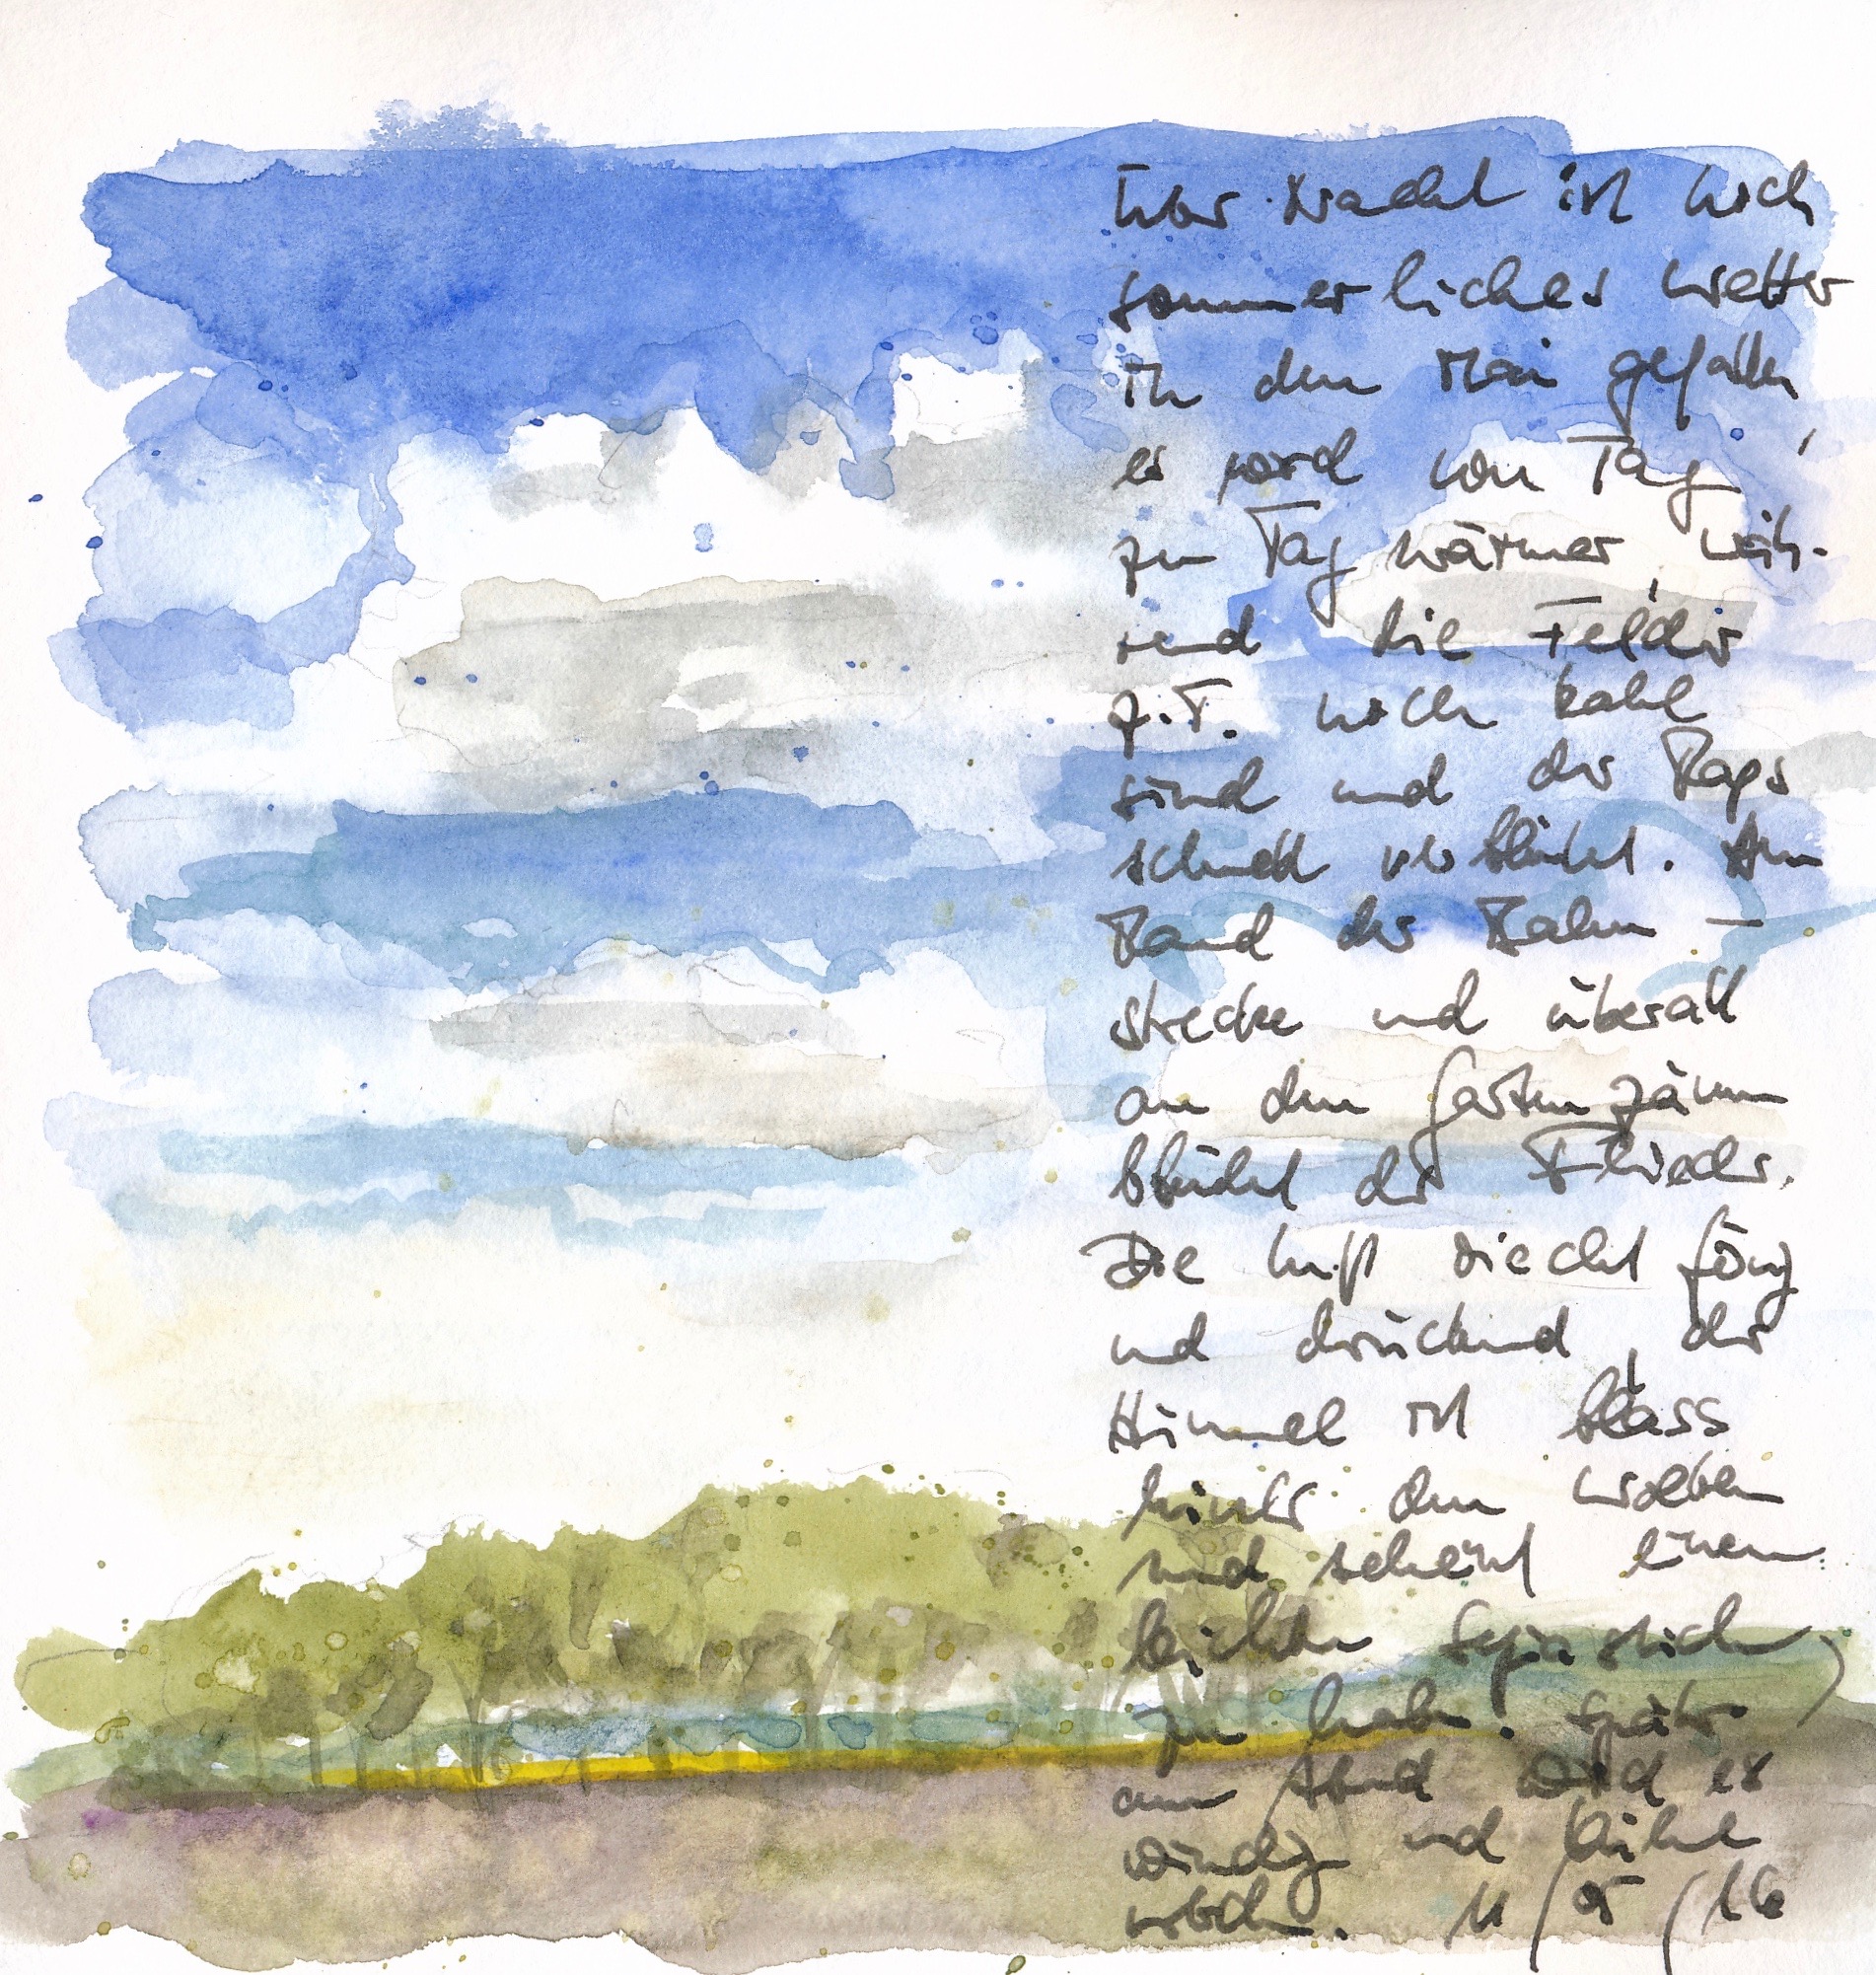 Über Nacht ist hoch
sommerliches Wetter
in den Mai gefallen,
es wird von Tag
zu Tag wärmer, wäh-
rend die Felder
z.T. noch kahl
sind und der Raps
schnell verblüht. Am
Rand der Bahn-
strecke und überall
an den Gartenzäunen
blüht der Flieder.
Die Luft riecht
und drückend, der
Himmel ist blass
hinter den Wolken
und scheint einen
leichten Gelbstich
zu haben. Später
am Abend wird es
windig und kühl
werden. 11/05/16